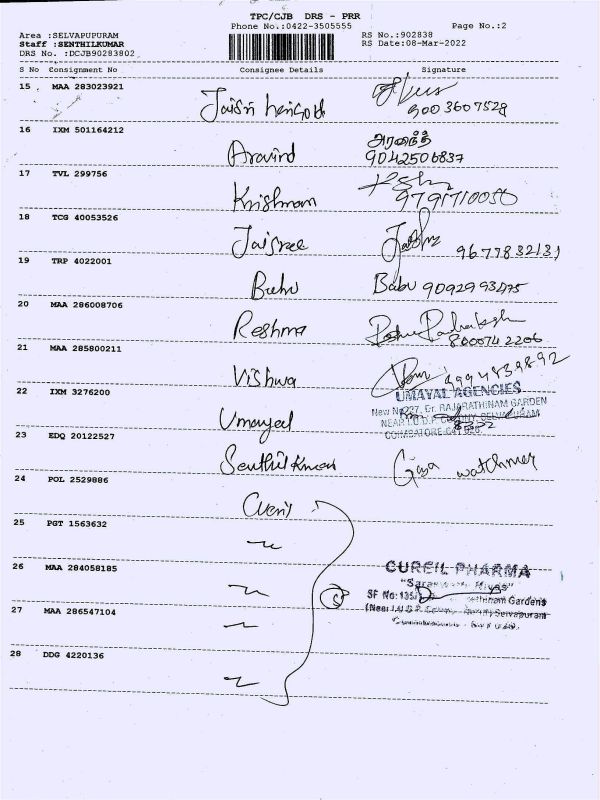 TPC/CJB DRS - PRR
Phone No.:0422-3505555
Page No.:2
Area :SELVAPUPURAM
RS No.:902838
Staff :SENTHILKUMAR
RS Date:08-Mar-2022
DRS No. :DCJB90283802
S No Consignment No Consignee Details Signature
15 MAA 283023921
Jaisri
16 IXM 501164212
Aravind
அரவிந்த்
9042506837
17 TVL 299756
Krishnan
9791710050
18 TCG 40053526
Jaisree
9677832131
19 TRP 4022001
Babu
Babu 9092993475
20 MAA 286008706
Reshma
8000742206
21 MAA 285800211
Vishwa
9994839892
22 IXM 3276200
Umayal
UMAYAL AGENCIES
New No.237, Er. RAJARATHINAM GARDEN
NEAR I.U.D.P. COLONY, SELVAPURAM
COIMBATORE-641 026.
23 EDQ 20122527
Senthilkumar
watchman
24 POL 2529886
Cureil
25 PGT 1563632
26 MAA 284058185
CUREIL PHARMA
SF No:135/
Gardens
Selvapuram
27 MAA 286547104
28 DDG 4220136